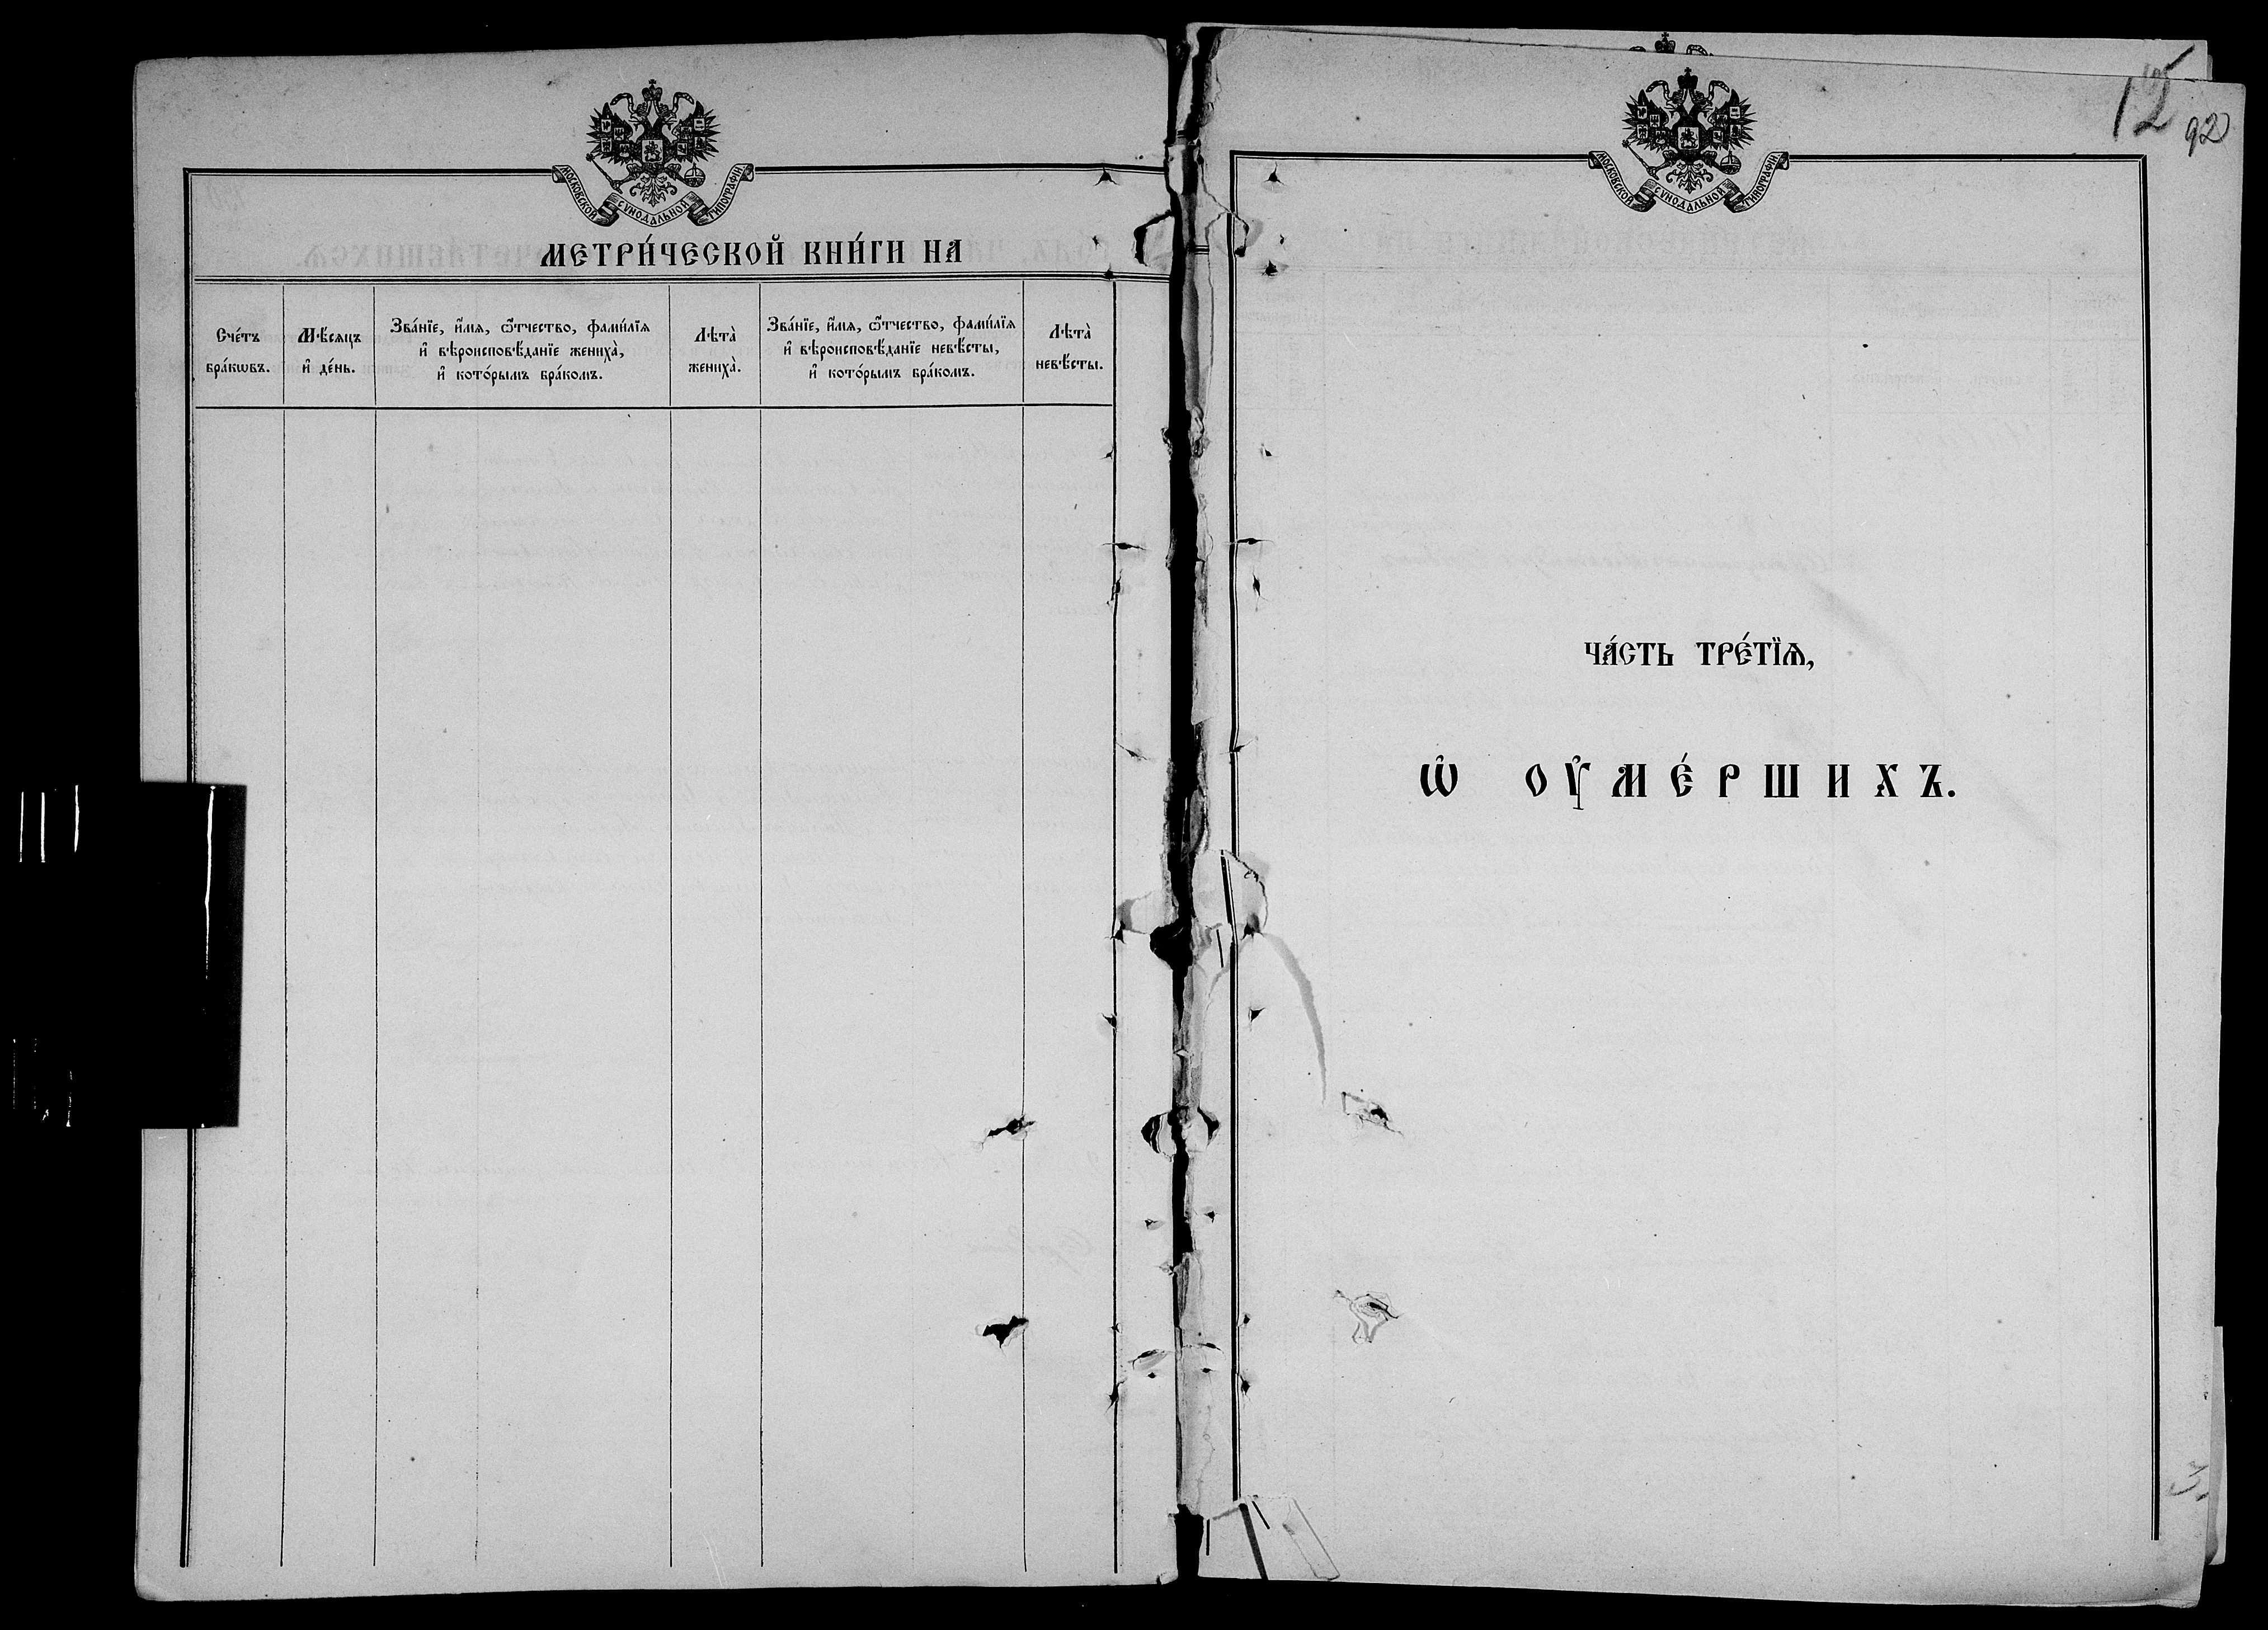 МОСКОВСКОЙ СѴНОДАЛЬНОЙ ТИПОГРАФІИ
МЕТРИ́ЧЕСКОЙ КНИ́ГИ НА
Сче́тъ
бра́кѡвъ.
Мѣ́сѧцъ
и҆ де́нь.
Зва́нїе, и҆́мѧ, ѻ҆́тчество, фами́лїѧ
и҆ вѣроисповѣ́данїе жениха̀,
и҆ кото́рымъ бра́комъ.
Лѣта̀
жениха̀.
Зва́нїе, и҆́мѧ, ѻ҆́тчество, фами́лїѧ
и҆ вѣроисповѣ́данїе невѣ́сты,
и҆ кото́рымъ бра́комъ.
Лѣта̀
невѣ́сты.
92
МОСКОВСКОЙ СѴНОДАЛЬНОЙ ТИПОГРАФІИ
ЧА́СТЬ ТРЕ́ТЇѦ,
Ѡ҆ ОУ҆МЕ́РШИХЪ.